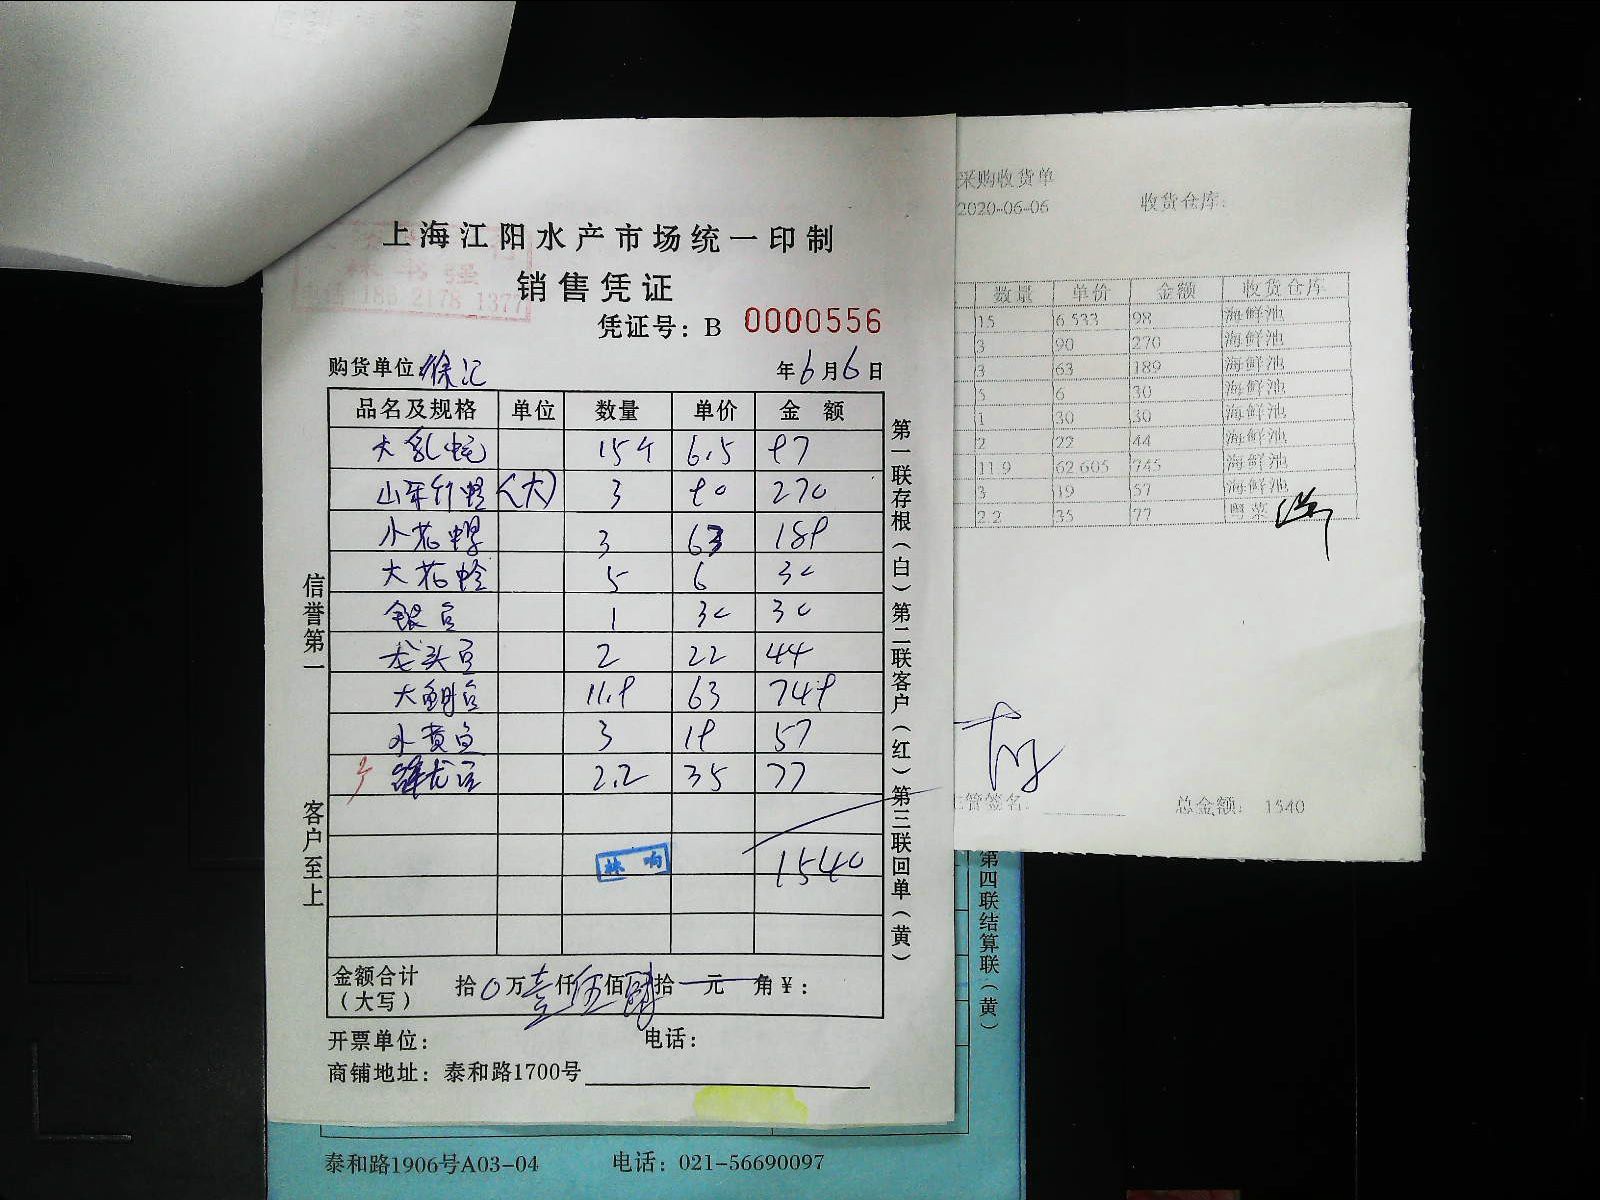 上海江阳水产市场统一印制
销售凭证
凭证号：B 0000556
购货单位：徐汇 年6月6日
品名及规格 单位 数量 单价 金额
大乳蛏 15斤 6.5 97
山东竹蛏（大） 3 90 270
小花螺 3 63 189
大花蛤 5 6 30
银鱼 1 30 30
龙头鱼 2 22 44
大鲳鱼 11.9 63 749
小黄鱼 3 19 57
龙鱼 2.2 35 77
林响
1540
金额合计（大写） 拾0万壹仟伍佰肆拾一元 角￥：
开票单位： 电话：
商铺地址：泰和路1700号
信誉第一 客户至上
第一联存根（白）第二联客户（红）第三联回单（黄）
采购收货单
2020-06-06 收货仓库：
数量 单价 金额 收货仓库
15 6.533 98 海鲜池
3 90 270 海鲜池
3 63 189 海鲜池
5 6 30 海鲜池
1 30 30 海鲜池
2 22 44 海鲜池
11.9 62.605 745 海鲜池
3 19 57 海鲜池
2.2 35 77
主管签名： 总金额： 1540
第四联结算联（黄）
泰和路1906号A03-04 电话：021-56690097